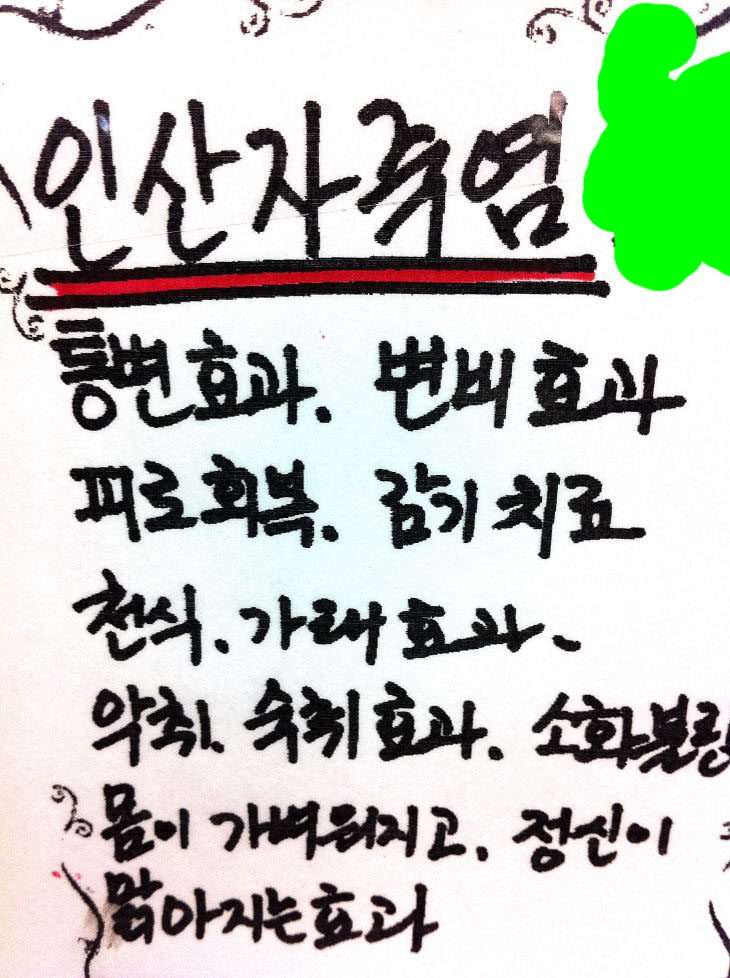 인산자죽염
통변효과. 변비효과
피로회복. 감기치료
천식. 가래효과.
악취. 숙취효과. 소화불량
몸이 가벼워지고. 정신이
맑아지는효과